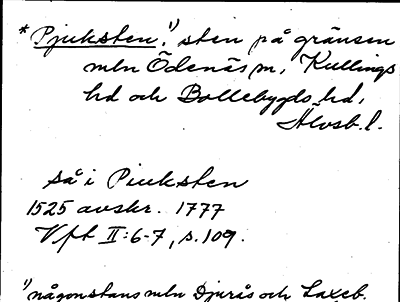 *Pjuksten.¹) sten på gränsen
mln Ödenäs m, Kullings
hd och Bollebygds hd,
Älvsb. l.
Så i Piuksten
1525 avskr. 1777
Vft II:6-7, s. 109.
¹) någonstans mln Djurås och Laxeb.